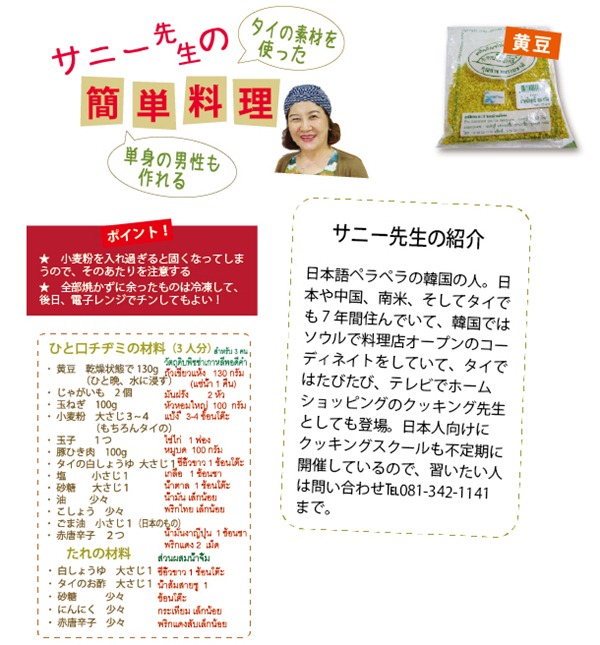 サニー先生の
タイの素材を
使った
簡単料理
単身の男性も
作れる
黄豆
ポイント！
★　小麦粉を入れ過ぎると固くなってしま
うので、そのあたりを注意する
★　全部焼かずに余ったものは冷凍して、
後日、電子レンジでチンしてもよい！
サニー先生の紹介
日本語ペラペラの韓国の人。日
本や中国、南米、そしてタイで
も７年間住んでいて、韓国では
ソウルで料理店オープンのコー
ディネイトをしていて、タイで
はたびたび、テレビでホーム
ショッピングのクッキング先生
としても登場。日本人向けに
クッキングスクールも不定期に
開催しているので、習いたい人
は問い合わせ℡081-342-1141
まで。
ひと口チヂミの材料（３人分）สำหรับ 3 คน
วัตถุดิบพิซซ่าเกาหลีพอดีคำ
・黄豆　乾燥状態で130g ถั่วเขียวแห้ง 130 กรัม
（ひと晩、水に浸す） (แช่น้ำ 1 คืน)
・じゃがいも　２個 มันฝรั่ง 2 หัว
・玉ねぎ　100g หัวหอมใหญ่ 100 กรัม
・小麦粉　大さじ３～４ แป้ง 3-4 ช้อนโต๊ะ
（もちろんタイの）
・玉子　　１つ ไข่ไก่ 1 ฟอง
・豚ひき肉　100g หมูบด 100 กรัม
・タイの白しょうゆ　大さじ１ ซีอิ๊วขาว 1 ช้อนโต๊ะ
・塩　　小さじ１ เกลือ 1 ช้อนชา
・砂糖　　大さじ１ น้ำตาล 1 ช้อนโต๊ะ
・油　　少々 น้ำมัน เล็กน้อย
・こしょう　少々 พริกไทย เล็กน้อย
・ごま油　小さじ１（日本のもの） น้ำมันงาญี่ปุ่น 1 ช้อนชา
・赤唐辛子　２つ พริกแดง 2 เม็ด
たれの材料 ส่วนผสมน้ำจิ้ม
・白しょうゆ　大さじ１ ซีอิ๊วขาว 1 ช้อนโต๊ะ
・タイのお酢　大さじ１ น้ำส้มสายชู 1
・砂糖　　少々 ช้อนโต๊ะ
・にんにく　少々 กระเทียม เล็กน้อย
・赤唐辛子　少々 พริกแดงสับเล็กน้อย